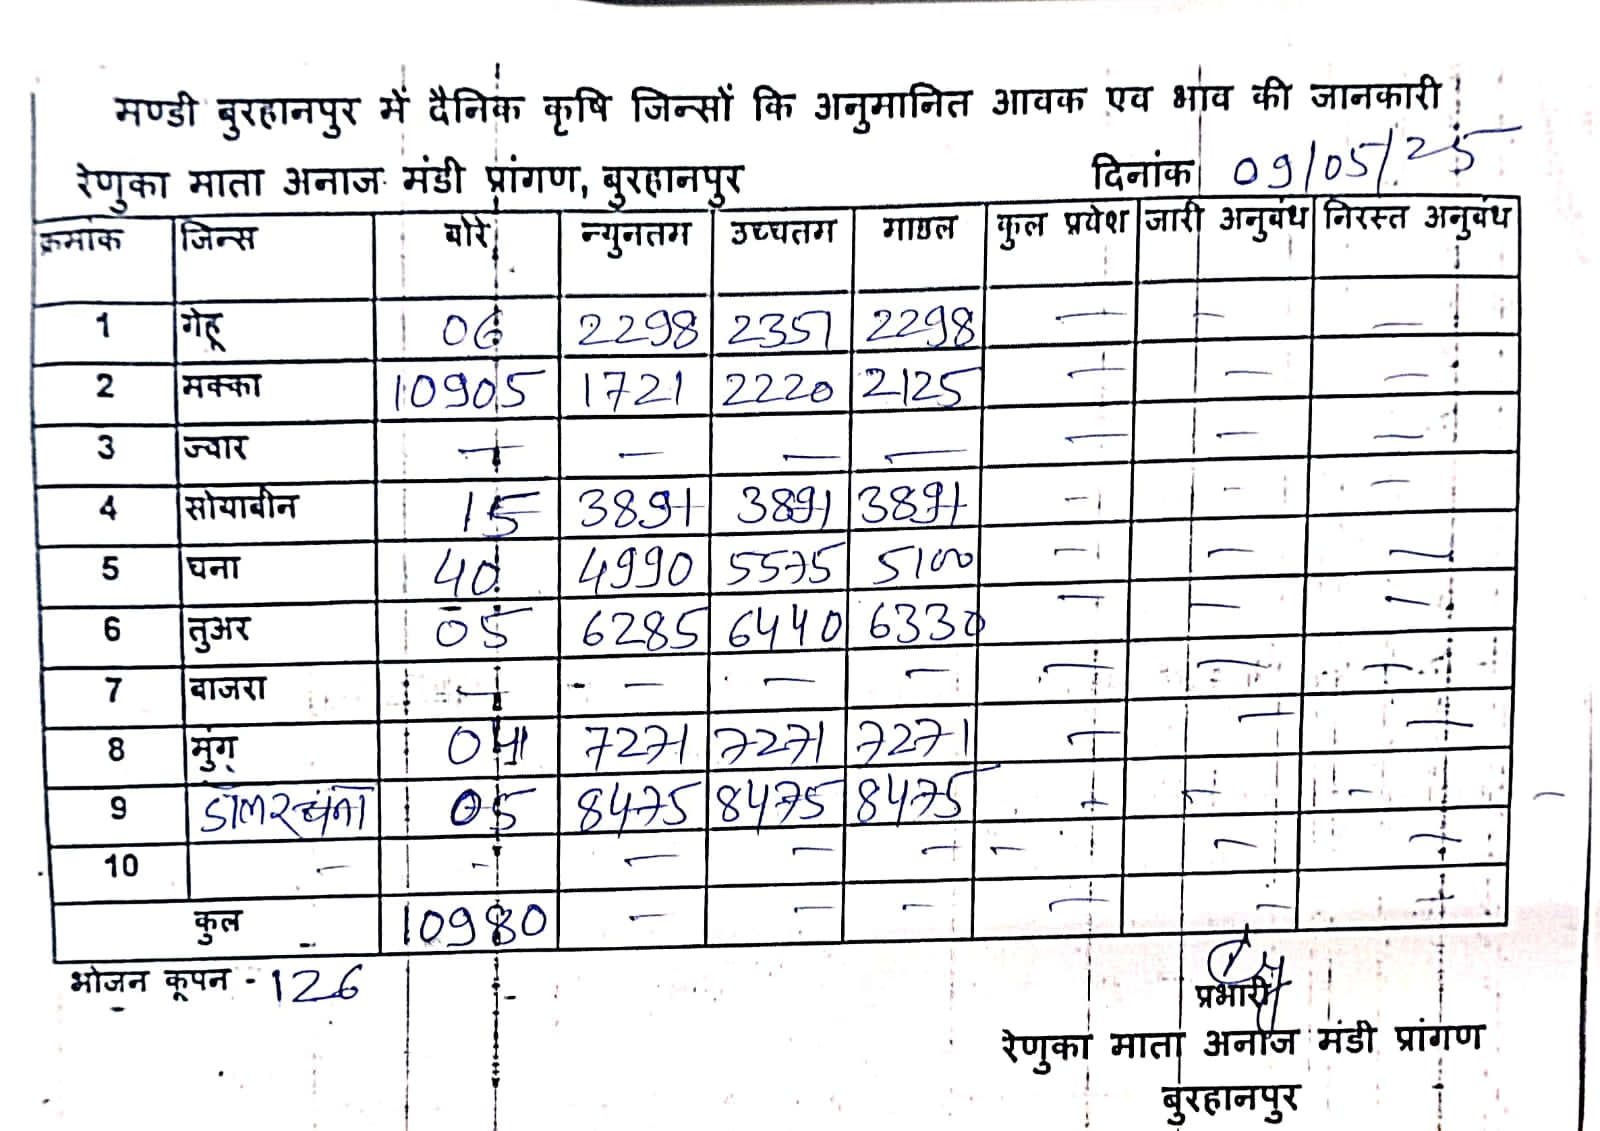 मण्डी बुरहानपुर में दैनिक कृषि जिन्सों कि अनुमानित आवक एव भाव की जानकारी
रेणुका माता अनाज मंडी प्रांगण, बुरहानपुर दिनांक 09/05/25
क्रमांक जिन्स बोरे न्युनतम उच्चतम माडल कुल प्रवेश जारी अनुबंध निरस्त अनुबंध
1 गेहू 06 2298 2351 2298 — — —
2 मक्का 10905 1721 2220 2125 — — —
3 ज्वार — — — — — — —
4 सोयाबीन 15 3891 3891 3891 — — —
5 चना 40 4990 5575 5100 — — —
6 तुअर 05 6285 6440 6330 — — —
7 बाजरा — — — — — — —
8 मुंग् 04 7271 7271 7271 — — —
9 डालरचना 05 8475 8475 8475 — — —
10 — — — — — — — —
कुल 10980 — — — — — —
भोजन कूपन - 126
प्रभारी
रेणुका माता अनाज मंडी प्रांगण
बुरहानपुर